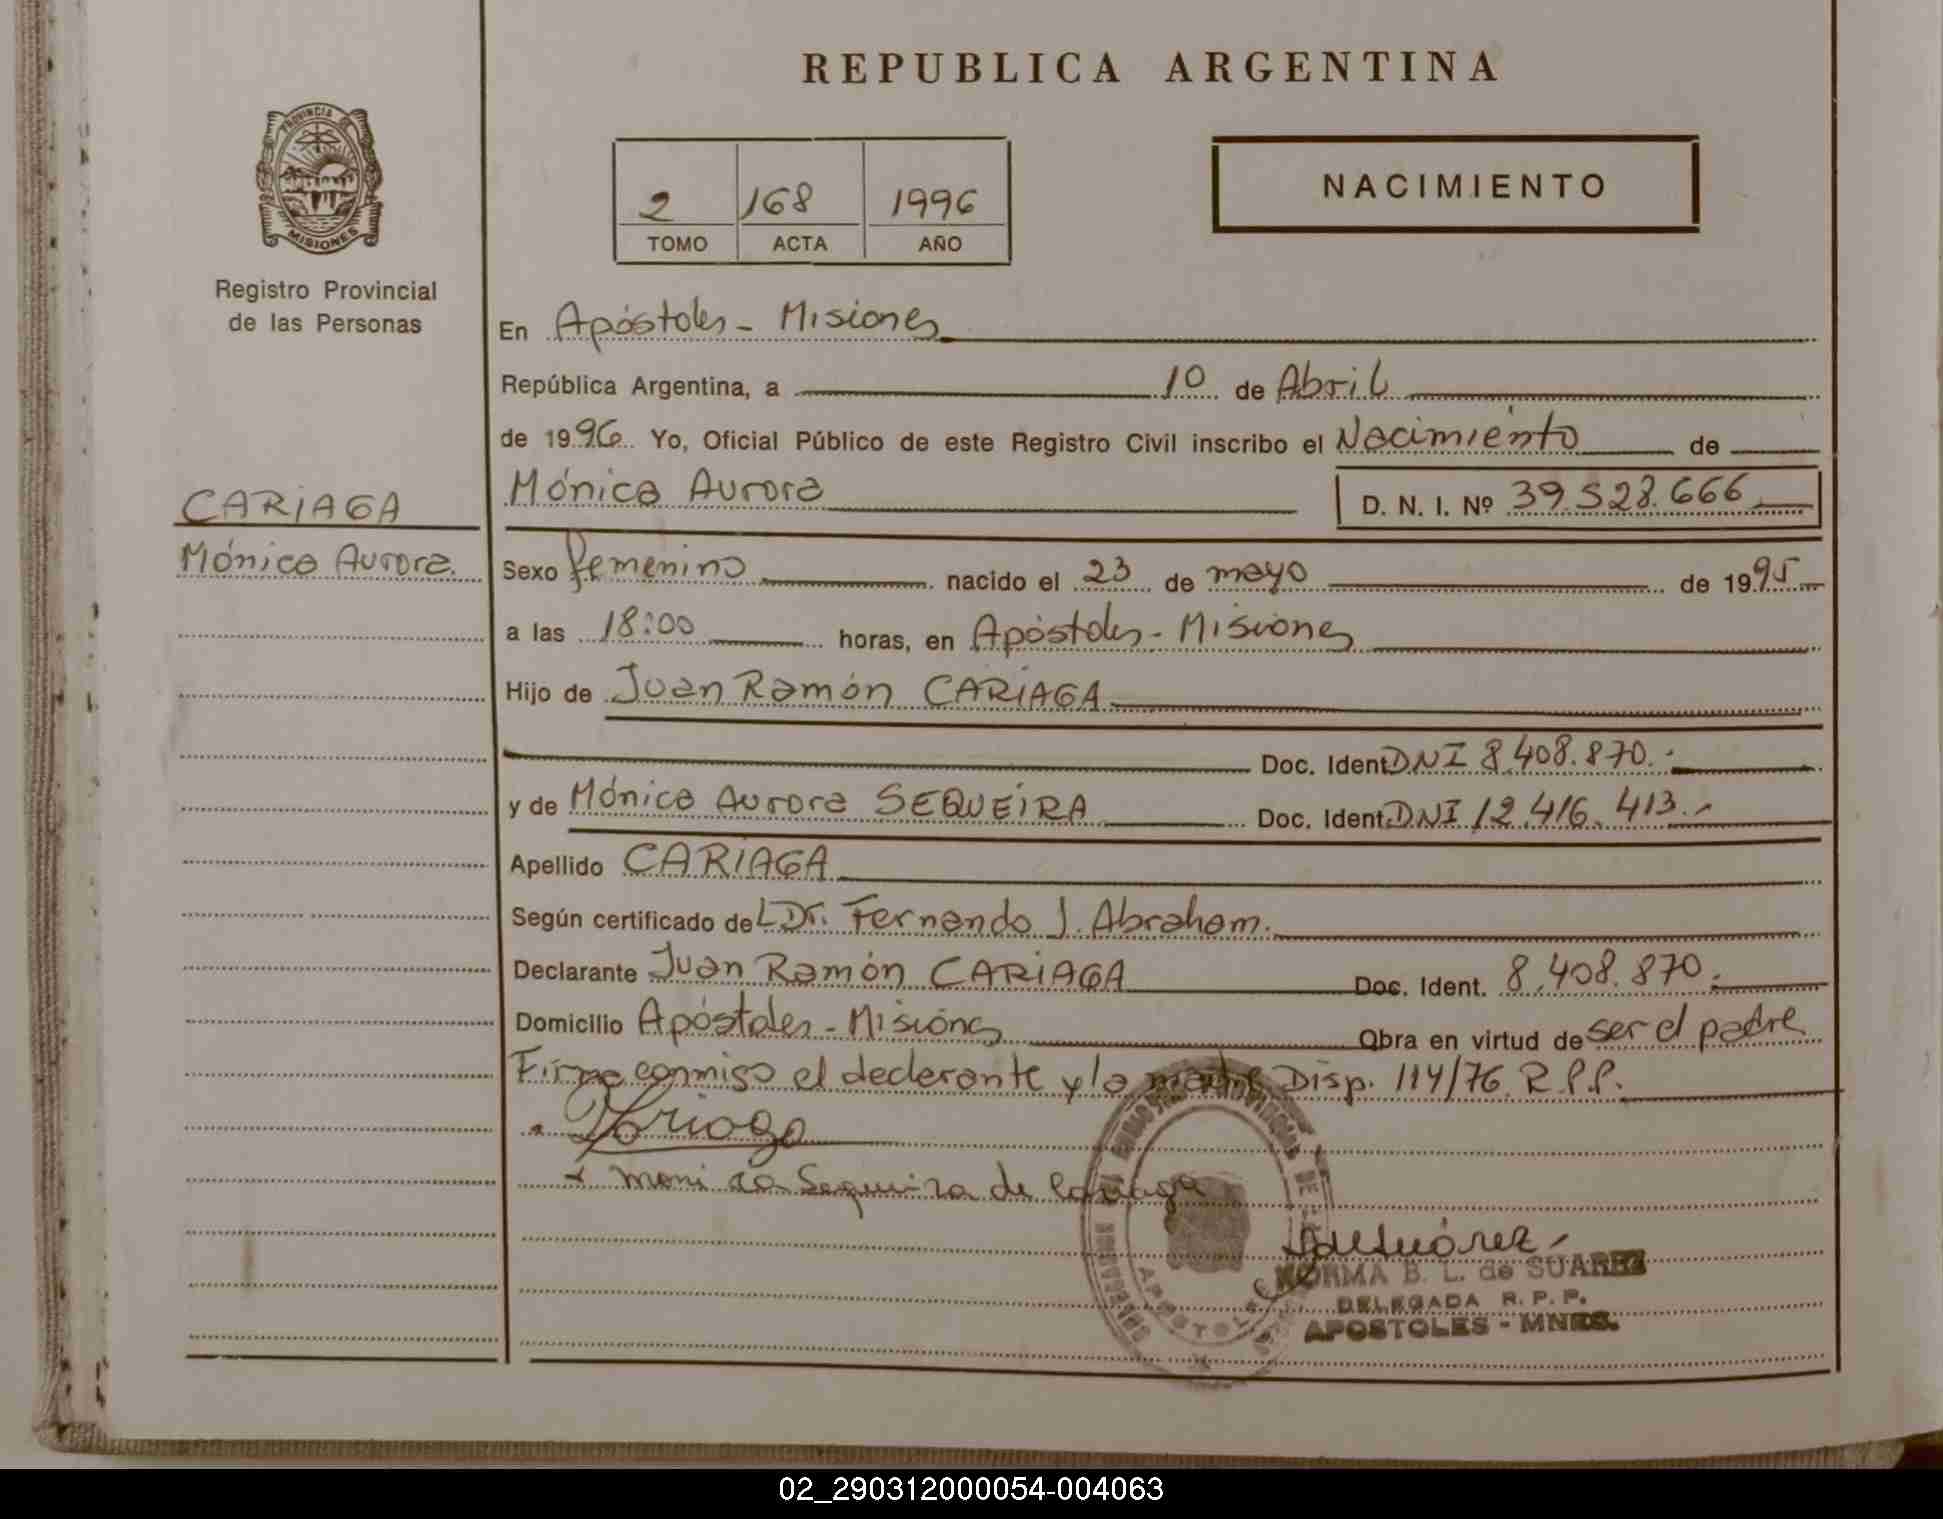 REPUBLICA ARGENTINA
PROVINCIA DE
MISIONES
Registro Provincial
de las Personas
2 168 1996
TOMO ACTA AÑO
NACIMIENTO
En Apóstoles - Misiones
República Argentina, a 10 de Abril
de 1996 Yo, Oficial Público de este Registro Civil inscribo el Nacimiento de
CARIAGA
Mónica Aurora
Mónica Aurora D. N. I. Nº 39.528.666
Sexo femenino nacido el 23 de mayo de 1995
a las 18:00 horas, en Apóstoles - Misiones
Hijo de Juan Ramón CARIAGA
Doc. Ident. DNI 8.408.870.-
y de Mónica Aurora SEQUEIRA Doc. Ident. DNI 12.416.413.-
Apellido CARIAGA
Según certificado del Dr. Fernando J. Abraham.
Declarante Juan Ramón CARIAGA Doc. Ident. 8.408.870.
Domicilio Apóstoles - Misiones Obra en virtud de ser el padre
Firma conmigo el declarante y la madre Disp. 114/76 R.P.P.
Cariaga
Monica Sequeira de Cariaga
NORMA B. L. de SUAREZ
DELEGADA R. P. P.
APOSTOLES - MNES.
02_290312000054-004063